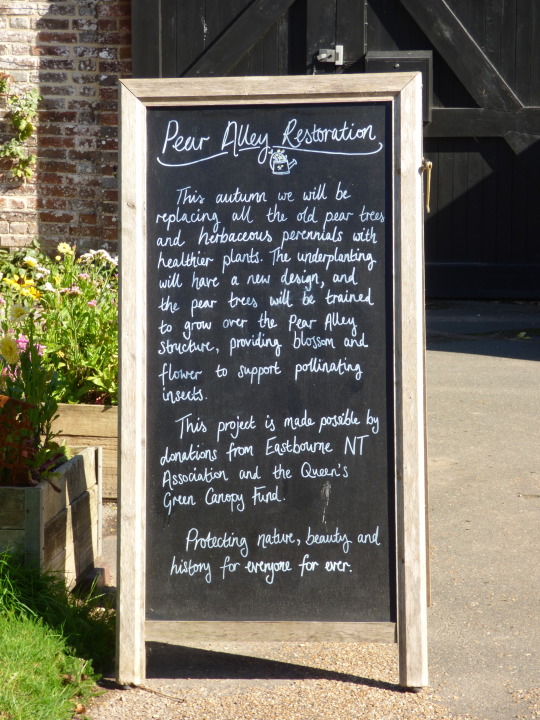 Pear Alley Restoration
This autumn we will be
replacing all the old pear trees
and herbaceous perennials with
healthier plants. The underplanting
will have a new design, and
the pear trees will be trained
to grow over the Pear Alley
structure, providing blossom and
flower to support pollinating
insects.
This project is made possible by
donations from Eastbourne NT
Association and the Queen's
Green Canopy Fund.
Protecting nature, beauty and
history for everyone for ever.